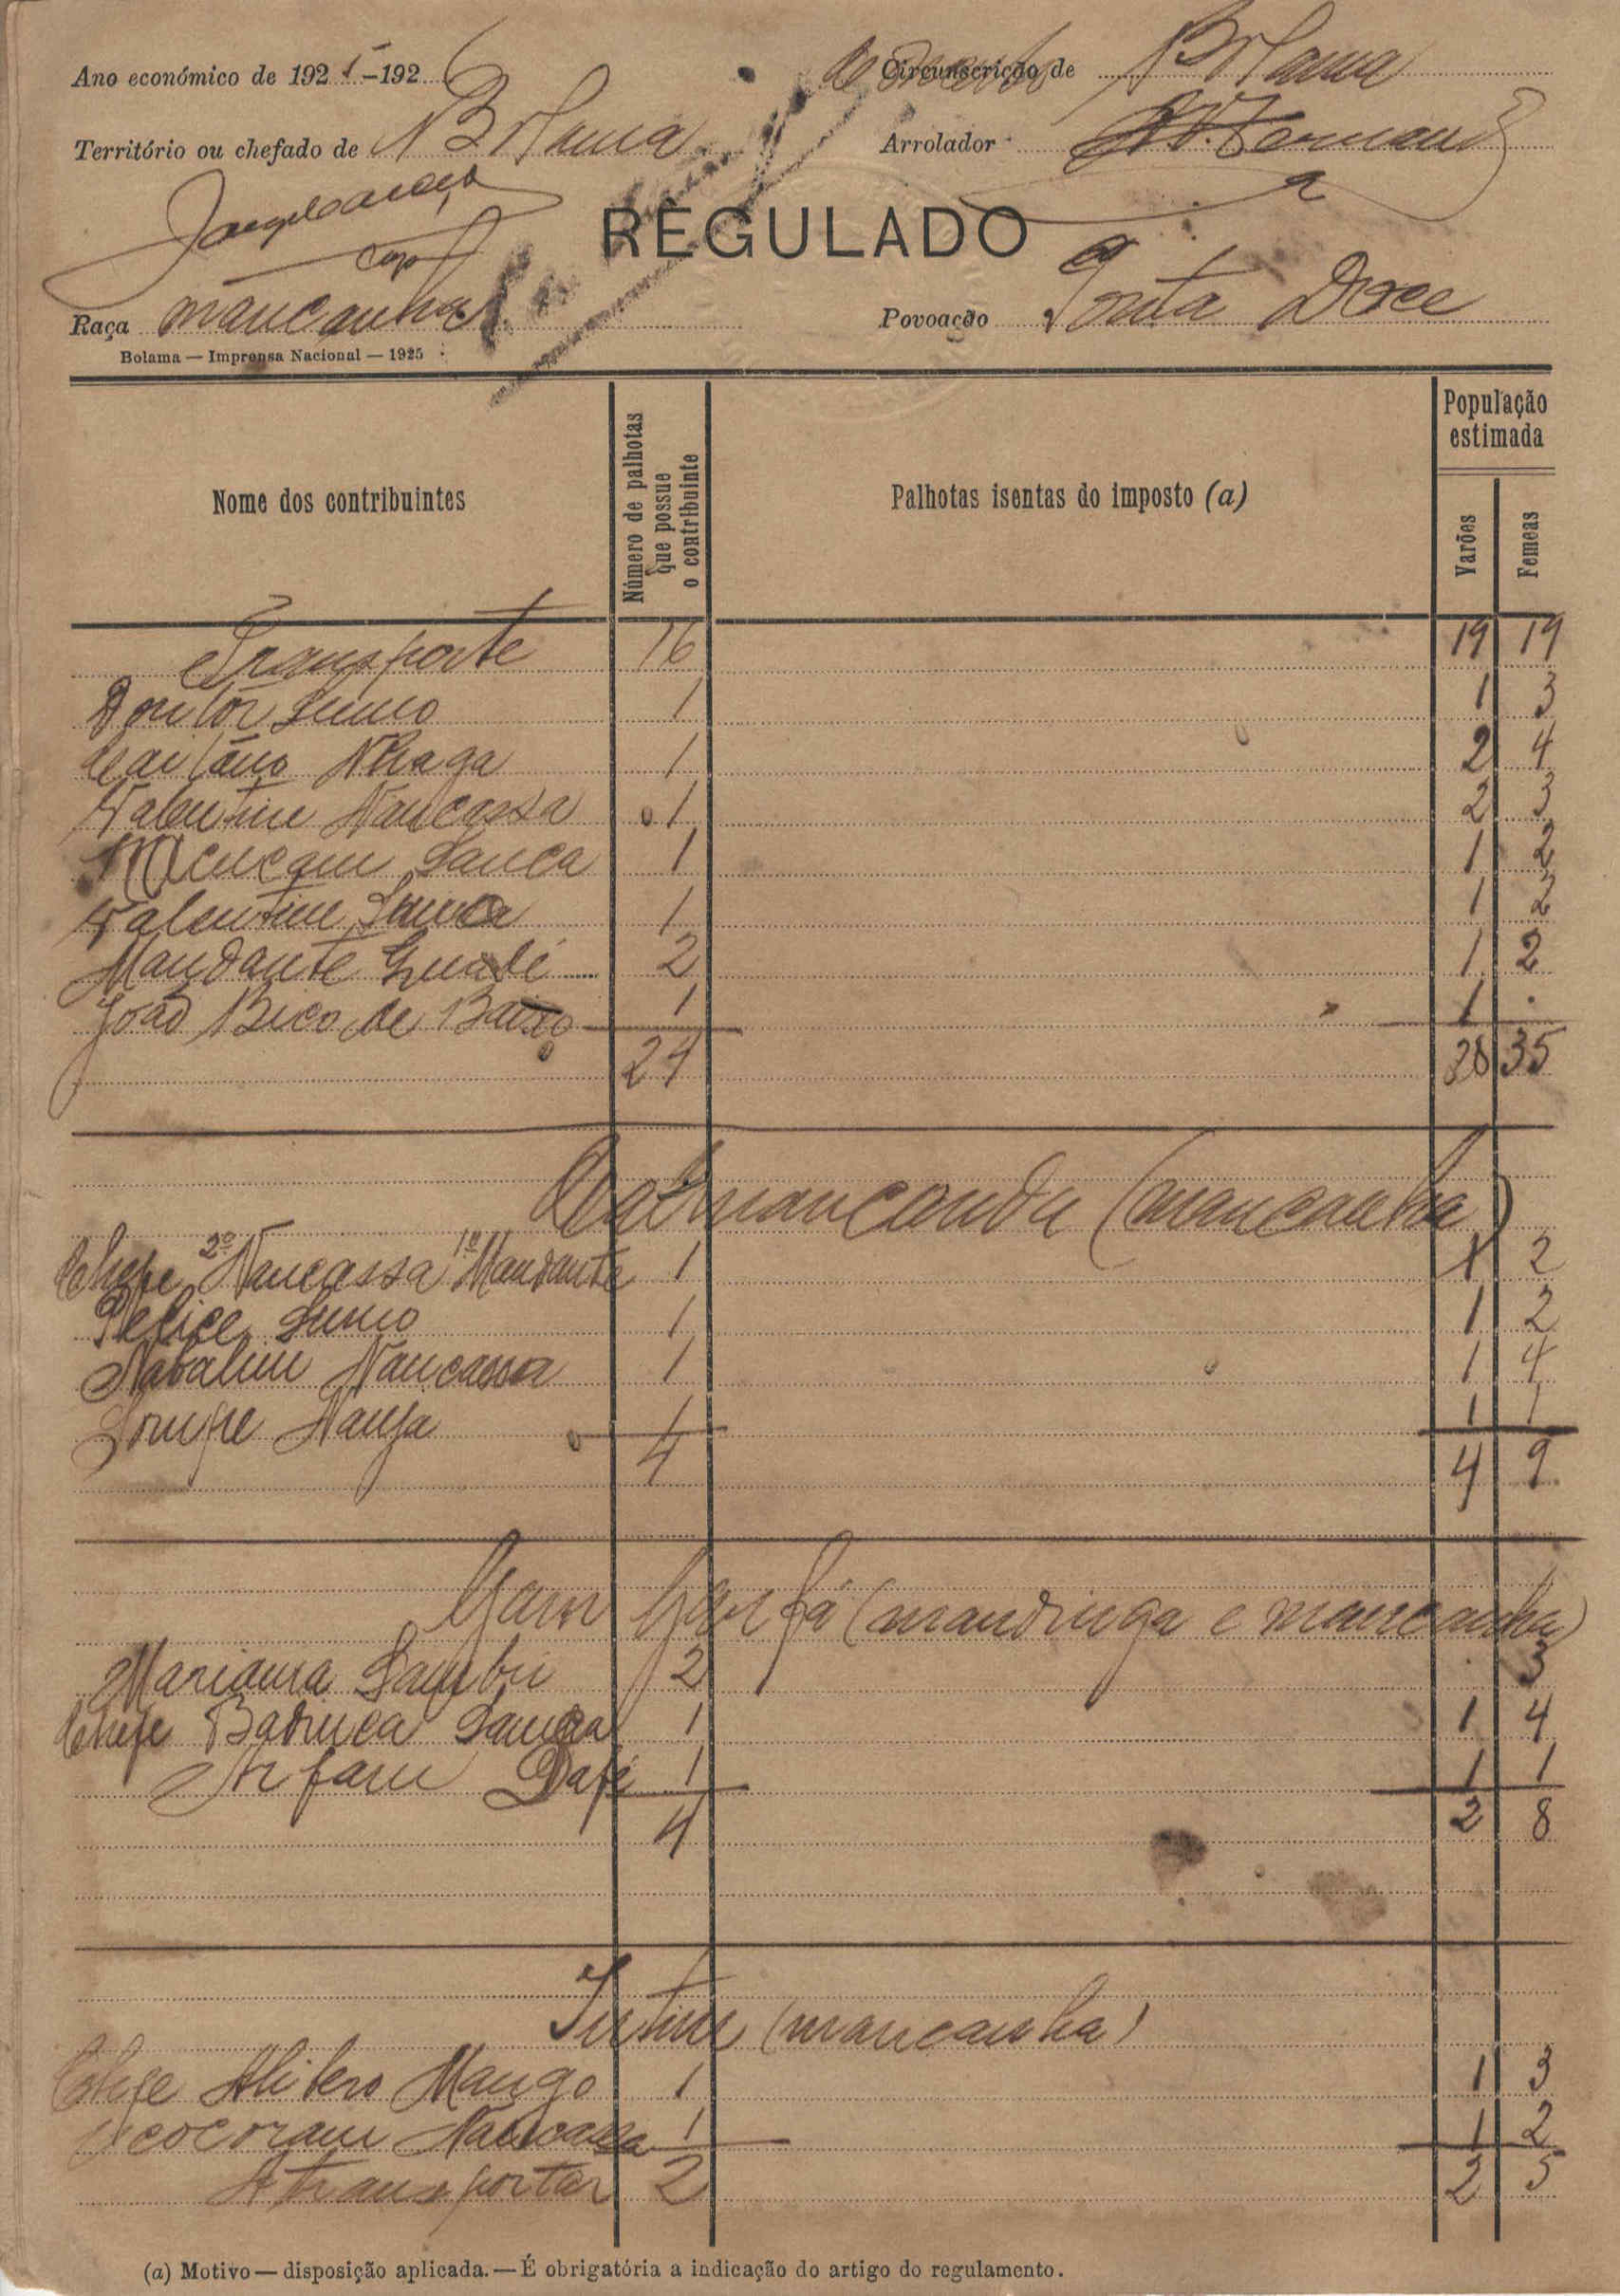 Ano económico de 1925-1926
Concelho Circunscrição de Bolama
Território ou chefado de Bolama
Arrolador
REGULADO
Raça mancanha
Povoação Ponta Doce
Bolama — Imprensa Nacional — 1925
Nome dos contribuintes
Número de palhotas que possue o contribuinte
Palhotas isentas do imposto (a)
População estimada
Varões
Femeas
Transporte 16 19 19
Sumo 1 1 3
Caitano Nhaga 1 2 4
Valentim Nancassa 1 2 3
Sanca 1 1 2
Valentim Sanca 1 1 2
Mandante 2 1 2
João Bico de Baixo 1 1 .
24 28 35
(mancanha)
Chefe 2º Nancassa 1º Mandante 1 1 2
Felice Sumo 1 1 2
Nabalim Nancassa 1 1 4
1 1 1
4 4 9
Gam (mandinga e mancanha)
Mariama Sambu 2 . 3
Chefe Badinca Sanca 1 1 4
Arfam Dafé 1 1 1
4 2 8
Intim (mancanha)
Chefe Mango 1 1 3
Nancassa 1 1 2
A transportar 2 2 5
(a) Motivo — disposição aplicada. — É obrigatória a indicação do artigo do regulamento.